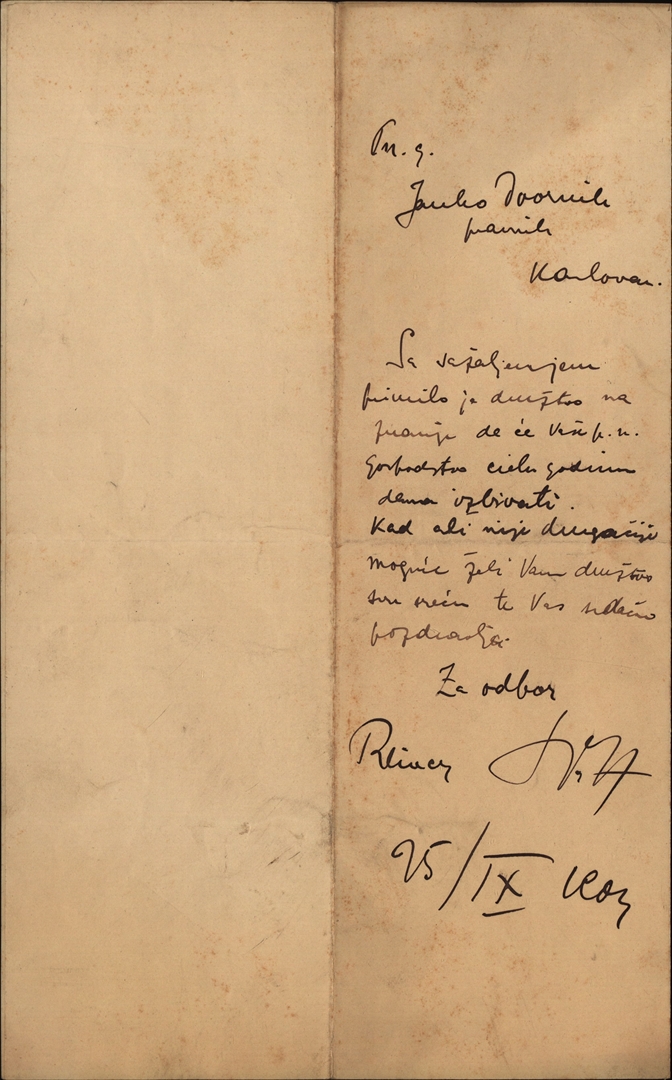 P.n. g.
Janko Dvornik
pravnik
Karlovac.
Sa sažaljenjem
primilo je društvo na
znanje da će Vaše p. n.
Gospodstvo cielu godinu
dana izbivati.
Kad ali nije drugačije
moguće želi Vam društvo
svu sreću te Vas srdačno
pozdravlja.
Za odbor
25/IX